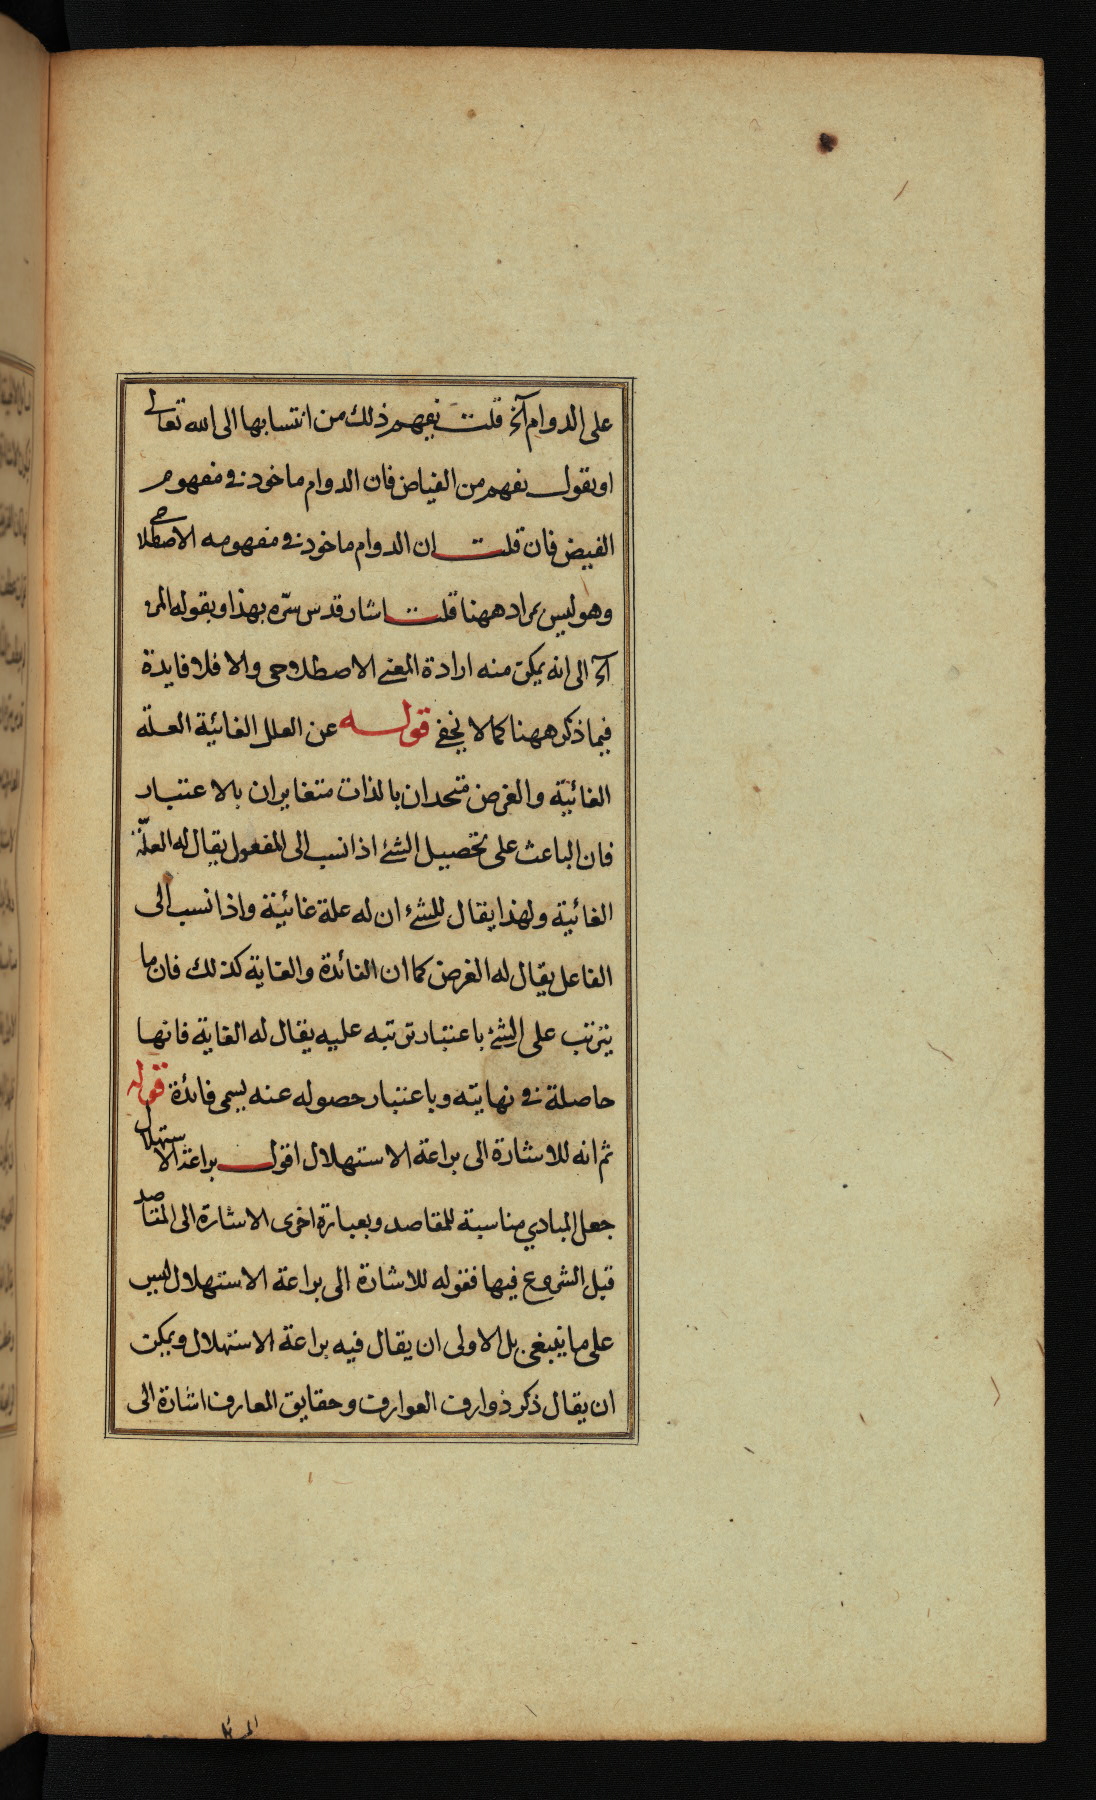 على الدوام آلخ قلت يفهم ذلك من انتسابها الى الله تعالى
او بقول يفهم من الفياض فان الدوام ماخوذ في مفهوم
الفيض فان قلت ان الدوام ماخوذ في مفهومه الاصطلاحي
وهو ليس بمراد ههنا قلت اشار قدس سره بهذا وبقوله المر
آه الى انه يمكن منه ارادة المعنى الاصطلاحى والا فلا فايدة
فيما ذكر ههنا كما لا يخفى قوله عن العلل الغائية العلة
الغائية والغرض متحدان بالذات متغايران بالاعتبار
فان الباعث على تحصيل الشئ اذا نسب الى المفعول يقال له العلة
الغائية ولهذا يقال للشئ ان له علة غائية واذا نسب الى
الفاعل يقال له الغرض كما ان الفائدة والغاية كذلك فان ما
يترتب على الشئ باعتبار ترتبه عليه يقال له الغاية فانها
حاصلة في نهايته وباعتبار حصوله عنه يسمى فائدة قوله
ثم انه للاشارة الى براعة الاستهلال اقول براعة الاستهلال
جعل المبادي مناسبة للمقاصد وبعبارة اخرى الاشارة الى المقاصد
قبل الشروع فيها فقوله للاشارة الى براعة الاستهلال ليس
على ما ينبغى بل الاولى ان يقال فيه براعة الاستهلال ويمكن
ان يقال ذكر ذوارف العوارف وحقايق المعارف اشارة الى